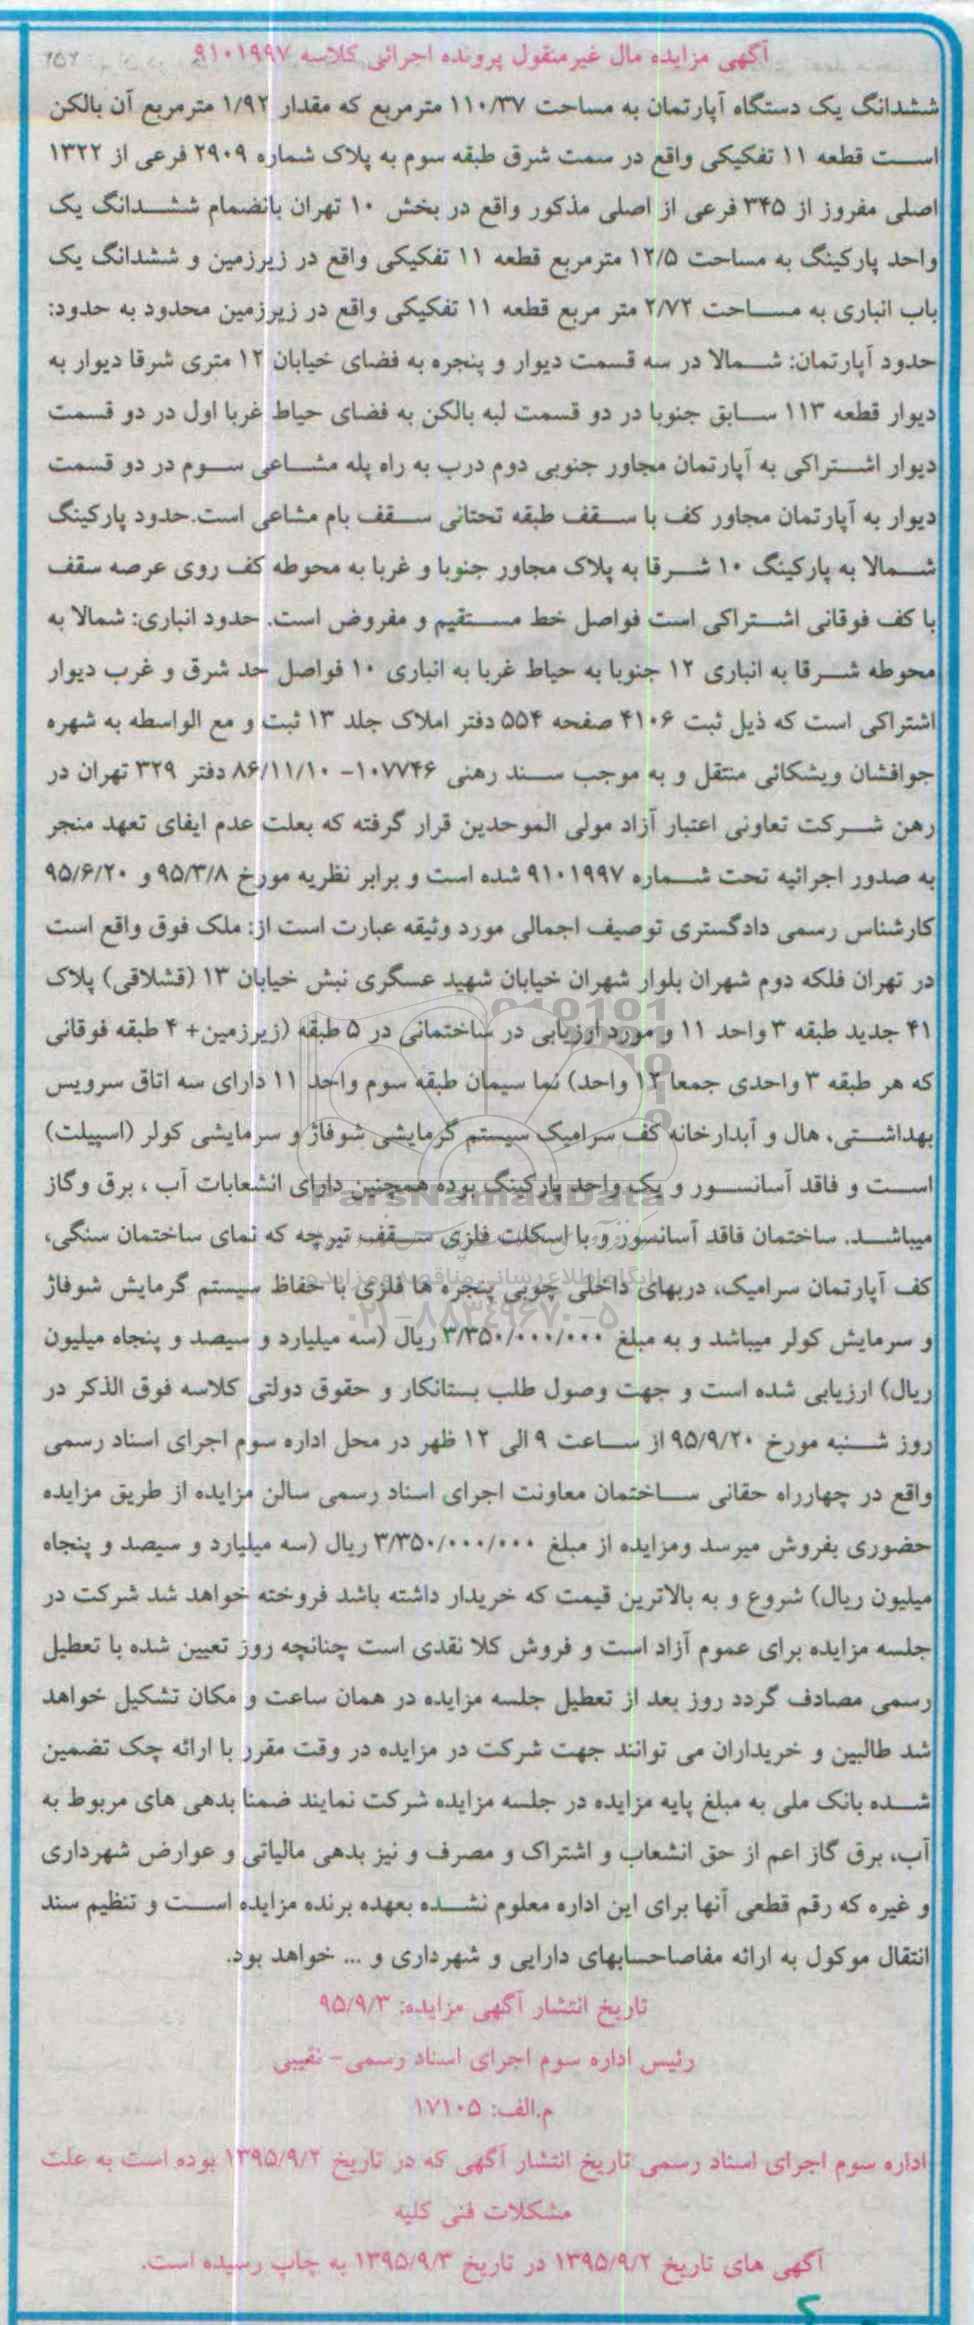 آگهی مزایده مال غیرمنقول پرونده اجرائی کلاسه ۹۱۰۱۹۹۷
ششدانگ یک دستگاه آپارتمان به مساحت ۱۱۰/۳۷ مترمربع که مقدار ۱/۹۲ مترمربع آن بالکن
است قطعه ۱۱ تفکیکی واقع در سمت شرق طبقه سوم به پلاک شماره ۲۹۰۹ فرعی از ۱۳۲۲
اصلی مفروز از ۳۴۵ فرعی از اصلی مذکور واقع در بخش ۱۰ تهران بانضمام ششدانگ یک
واحد پارکینگ به مساحت ۱۲/۵ مترمربع قطعه ۱۱ تفکیکی واقع در زیرزمین و ششدانگ یک
باب انباری به مساحت ۲/۷۲ متر مربع قطعه ۱۱ تفکیکی واقع در زیرزمین محدود به حدود:
حدود آپارتمان: شمالا در سه قسمت دیوار و پنجره به فضای خیابان ۱۲ متری شرقا دیوار به
دیوار قطعه ۱۱۳ سابق جنوبا در دو قسمت لبه بالکن به فضای حیاط غربا اول در دو قسمت
دیوار اشتراکی به آپارتمان مجاور جنوبی دوم درب به راه پله مشاعی سوم در دو قسمت
دیوار به آپارتمان مجاور کف با سقف طبقه تحتانی سقف بام مشاعی است.حدود پارکینگ
شمالا به پارکینگ ۱۰ شرقا به پلاک مجاور جنوبا و غربا به محوطه کف روی عرصه سقف
با کف فوقانی اشتراکی است فواصل خط مستقیم و مفروض است. حدود انباری: شمالا به
محوطه شرقا به انباری ۱۲ جنوبا به حیاط غربا به انباری ۱۰ فواصل حد شرق و غرب دیوار
اشتراکی است که ذیل ثبت ۴۱۰۶ صفحه ۵۵۴ دفتر املاک جلد ۱۳ ثبت و مع الواسطه به شهره
جوافشان ویشکائی منتقل و به موجب سند رهنی ۱۰۷۷۴۶- ۸۶/۱۱/۱۰ دفتر ۳۲۹ تهران در
رهن شرکت تعاونی اعتبار آزاد مولی الموحدین قرار گرفته که بعلت عدم ایفای تعهد منجر
به صدور اجرائیه تحت شماره ۹۱۰۱۹۹۷ شده است و برابر نظریه مورخ ۹۵/۳/۸ و ۹۵/۶/۲۰
کارشناس رسمی دادگستری توصیف اجمالی مورد وثیقه عبارت است از: ملک فوق واقع است
در تهران فلکه دوم شهران بلوار شهران خیابان شهید عسگری نبش خیابان ۱۳ (قشلاقی) پلاک
۴۱ جدید طبقه ۳ واحد ۱۱ و مورد ارزیابی در ساختمانی در ۵ طبقه (زیرزمین+ ۴ طبقه فوقانی
که هر طبقه ۳ واحدی جمعا ۱۲ واحد) نما سیمان طبقه سوم واحد ۱۱ دارای سه اتاق سرویس
بهداشتی، هال و آبدارخانه کف سرامیک سیستم گرمایشی شوفاژ و سرمایشی کولر (اسپیلت)
است و فاقد آسانسور و یک واحد پارکینگ بوده همچنین دارای انشعابات آب ، برق وگاز
ParsNamadData
میباشد. ساختمان فاقد آسانسور و با اسکلت فلزی سقف تیرچه که نمای ساختمان سنگی،
کف آپارتمان سرامیک، دربهای داخلی چوبی پنجره ها فلزی با حفاظ سیستم گرمایش شوفاژ
۰۲۱-۸۸۳۴۹۶۷۰-۵
و سرمایش کولر میباشد و به مبلغ ۳/۳۵۰/۰۰۰/۰۰۰ ریال (سه میلیارد و سیصد و پنجاه میلیون
ریال) ارزیابی شده است و جهت وصول طلب بستانکار و حقوق دولتی کلاسه فوق الذکر در
روز شنبه مورخ ۹۵/۹/۲۰ از ساعت ۹ الی ۱۲ ظهر در محل اداره سوم اجرای اسناد رسمی
واقع در چهارراه حقانی ساختمان معاونت اجرای اسناد رسمی سالن مزایده از طریق مزایده
حضوری بفروش میرسد ومزایده از مبلغ ۳/۳۵۰/۰۰۰/۰۰۰ ریال (سه میلیارد و سیصد و پنجاه
میلیون ریال) شروع و به بالاترین قیمت که خریدار داشته باشد فروخته خواهد شد شرکت در
جلسه مزایده برای عموم آزاد است و فروش کلا نقدی است چنانچه روز تعیین شده با تعطیل
رسمی مصادف گردد روز بعد از تعطیل جلسه مزایده در همان ساعت و مکان تشکیل خواهد
شد طالبین و خریداران می توانند جهت شرکت در مزایده در وقت مقرر با ارائه چک تضمین
شده بانک ملی به مبلغ پایه مزایده در جلسه مزایده شرکت نمایند ضمنا بدهی های مربوط به
آب، برق گاز اعم از حق انشعاب و اشتراک و مصرف و نیز بدهی مالیاتی و عوارض شهرداری
و غیره که رقم قطعی آنها برای این اداره معلوم نشده بعهده برنده مزایده است و تنظیم سند
انتقال موکول به ارائه مفاصاحسابهای دارایی و شهرداری و ... خواهد بود.
تاریخ انتشار آگهی مزایده: ۹۵/۹/۳
رئیس اداره سوم اجرای اسناد رسمی- نقیبی
م.الف: ۱۷۱۰۵
اداره سوم اجرای اسناد رسمی تاریخ انتشار آگهی که در تاریخ ۱۳۹۵/۹/۲ بوده است به علت
مشکلات فنی کلیه
آگهی های تاریخ ۱۳۹۵/۹/۲ در تاریخ ۱۳۹۵/۹/۳ به چاپ رسیده است.